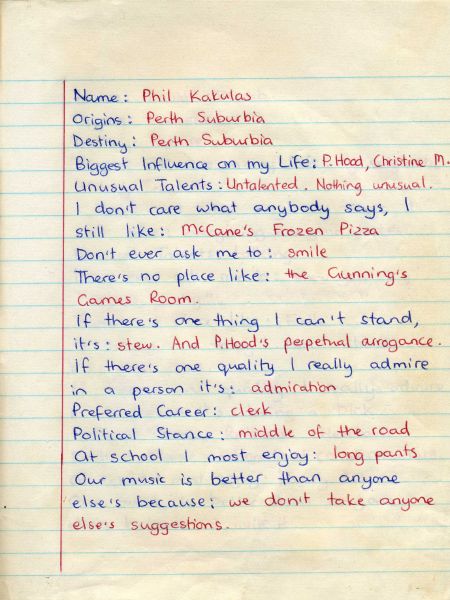 Name: Phil Kakulas
Origins: Perth Suburbia
Destiny: Perth Suburbia
Biggest Influence on my Life: P. Hood, Christine M.
Unusual Talents: Untalented. Nothing unusual.
I don't care what anybody says, I
still like: McCane's Frozen Pizza
Don't ever ask me to: smile
There's no place like: the Gunning's
Games Room.
If there's one thing I can't stand,
it's: stew. And P.Hood's perpetual arrogance.
If there's one quality I really admire
in a person it's: admiration
Preferred Career: clerk
Political Stance: middle of the road
At school I most enjoy: long pants
Our music is better than anyone
else's because: we don't take anyone
else's suggestions.